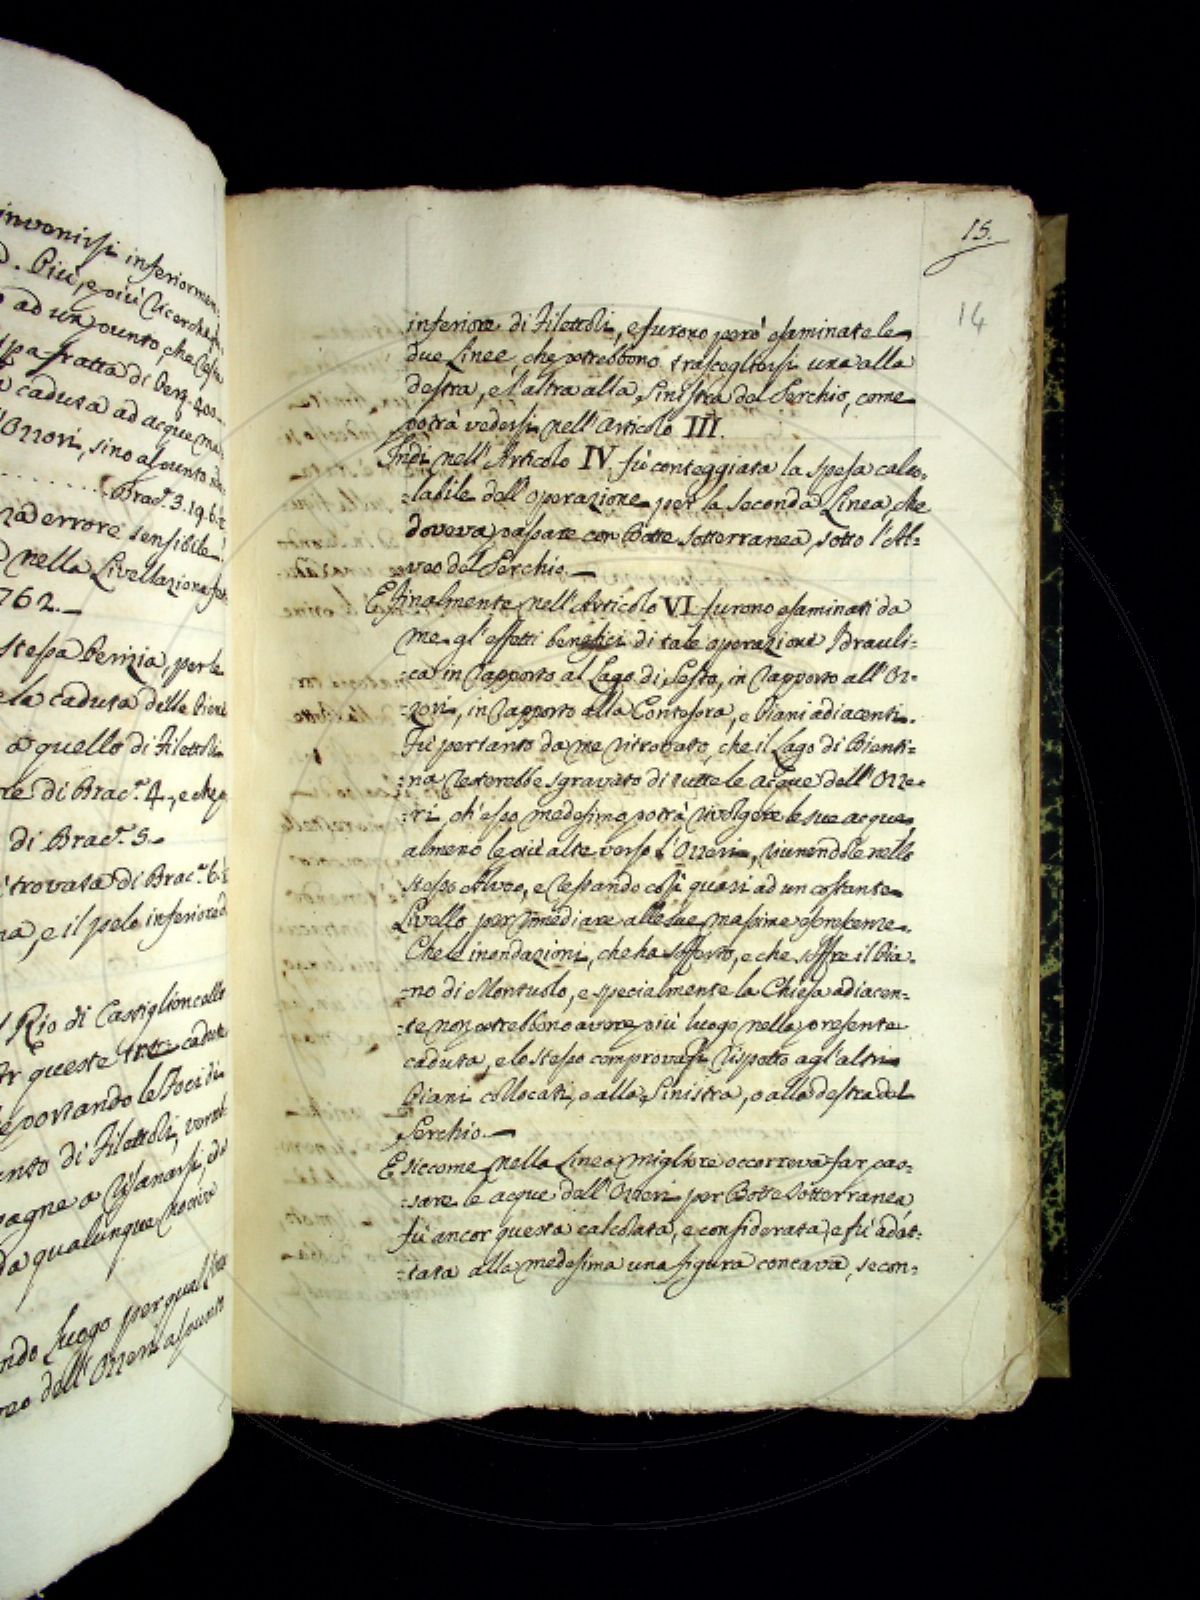 invenirsi inferiormen:
Più, e più ricerche fu:
ad un punto, che resta
spa fratta di Pert. 400.
caduta ad acque ma:
Ozzori, sino al punto
Brac.ª 3.19.6.
errore sensibile
nella Livellazione fat:
762.
stessa Perizia, per le
la caduta delle Piene
a quello di Filettoli
di Brac.ª 4., e che
di Brac.ª 5.
trovata di Brac.ª 6
e il pelo inferiore
Rio di Castiglioncello
queste tre cadute
portando le Foci di
di Filettoli, verre:
pagne a risanarsi, ed
da qualunque nociva
ndo luogo per qual
dell' Ozzeri al punto
15.
14
inferiore di Filettoli, e furono però esaminate le
due Linee, che potrebbono trascegliersi una alla
destra, e l'altra alla Sinistra del Serchio, come
potrà vedersi nell'Articolo III.
Indi nell'Articolo IV. fù conteggiata la spesa calco:
:labile dell'operazione per la seconda Linea, che
doveva passare con Botte sotterranea, sotto l'Al:
:veo del Serchio.
E finalmente nell'Articolo VI. furono esaminati da
me gl'effetti benefici di tale operazione Idrauli:
:ca in rapporto al Lago di Sesto, in rapporto all'Oz:
:zori, in rapporto alla Contesora, e Piani adiacenti.
Fù pertanto da me ritrovato, che il Lago di Bienti:
:na resterebbe sgravato di tutte le acque dell'Ozze:
:ri, ch'esso medesimo potrà rivolgere le sue acque
almeno le più alte verso l'Ozzeri, riunendole nello
stesso Alveo, e restando così quasi ad un costante
Livello per rimediare alle sue massime escrescenze.
Che le inondazioni, che ha sofferto, e che soffre il Pia:
:no di Montuolo, e specialmente la Chiesa adiacen:
:te non potrebbono avere più luogo nella presente
caduta, e lo stesso comprovasi rispetto agl'altri
Piani collocati, o alla Sinistra, o alla destra del
Serchio.
E siccome nella Linea migliore occorreva far pas:
:sare le acque dell'Ozzeri per Botte sotterranea,
fù ancor questa calcolata, e considerata, e fù adat:
:tata alla medesima una figura concava, secon: